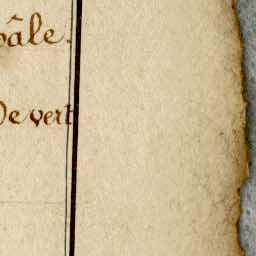 pâle.
De vert